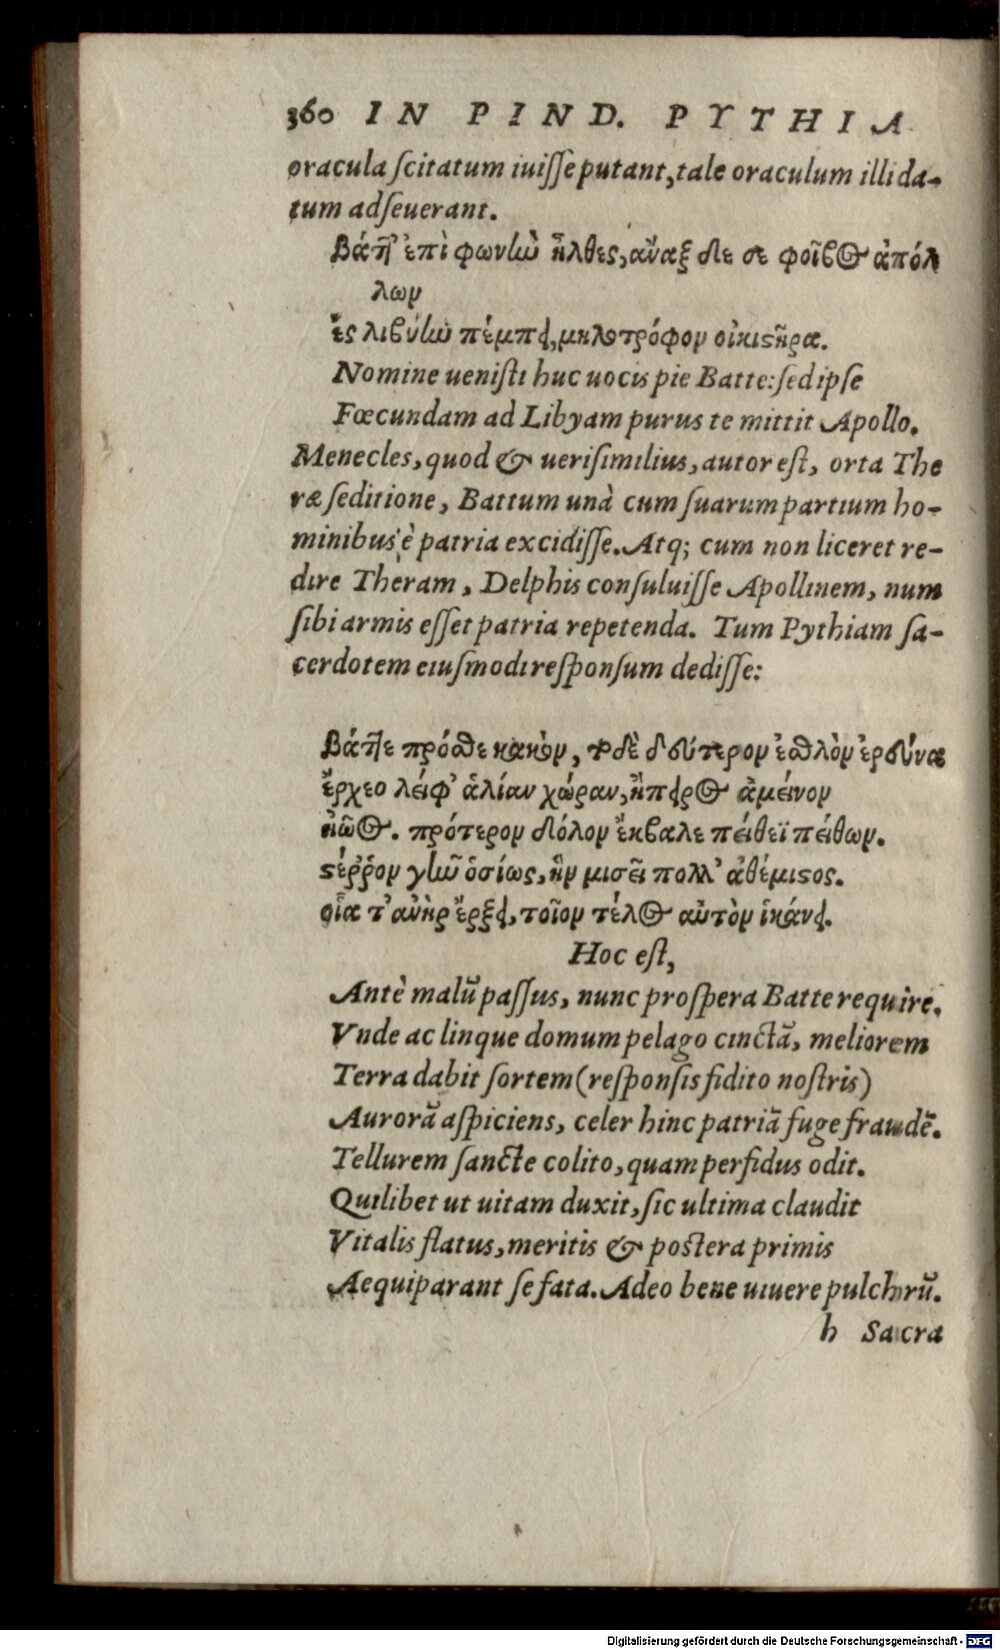 360 IN PIND. PYTHIA
oracula scitatum iuisse putant, tale oraculum illi da-
tum adseuerant.
βάττ' ἐπὶ φωνὴν ἦλθες, ἄναξ δε σε φοῖβος ἀπόλ
λων
ἐς λιβύην πέμπει, μηλοτρόφον οἰκιστῆρα.
Nomine uenisti huc uocis pie Batte: sed ipse
Fœcundam ad Libyam purus te mittit Apollo.
Menecles, quod & uerisimilius, autor est, orta The
ræ seditione, Battum unà cum suarum partium ho-
minibus è patria excidisse. Atq; cum non liceret re-
dire Theram, Delphis consuluisse Apollinem, num
sibi armis esset patria repetenda. Tum Pythiam sa-
cerdotem eiusmodi responsum dedisse:
βάττε πρόσθε κακὸν, δὲ δεύτερον ἐσθλὸν ἐρεύνα
ἔρχεο λεῖφ' ἁλίαν χώραν, ἤπειρος ἀμείνον
ἠῶος. πρότερον δόλον ἔκβαλε πείθεϊ πείθων.
στέρρον γῆν ὁσίως, ἣν μισεῖ πολλ' ἀθέμιστος.
οἷα τ' ἀνὴρ ἔρξει, τοῖον τέλος αὐτὸν ἱκάνει.
Hoc est,
Antè malū passus, nunc prospera Batte require.
Vnde ac linque domum pelago cinctā, meliorem
Terra dabit sortem (responsis fidito nostris)
Aurorā aspiciens, celer hinc patriā fuge fraudē.
Tellurem sancte colito, quam perfidus odit.
Quilibet ut uitam duxit, sic ultima claudit
Vitalis flatus, meritis & postera primis
Aequiparant se fata. Adeo bene uiuere pulchrū.
h Sacra
Digitalisierung gefördert durch die Deutsche Forschungsgemeinschaft - DFG